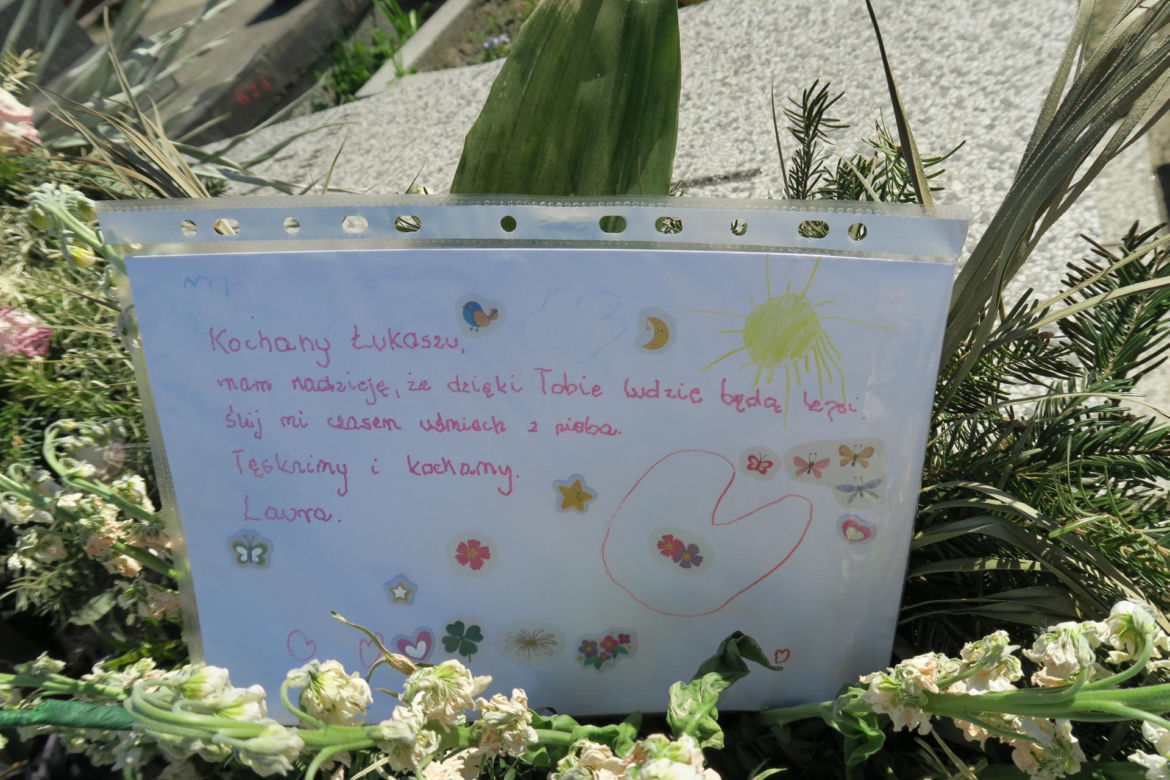 Kochany Łukaszu,
mam nadzieję, że dzięki Tobie ludzie będą lepsi
ślij mi czasem uśmiech z nieba.
Tęsknimy i kochamy.
Laura.